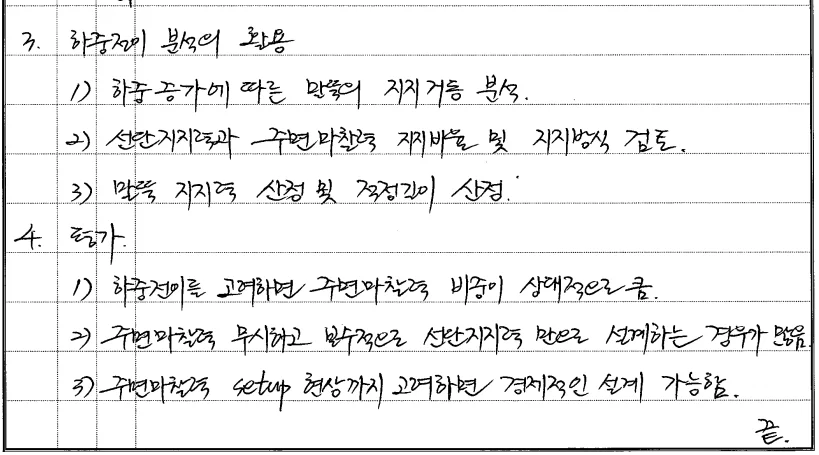 3. 하중전이 분석의 활용
1) 하중증가에 따른 말뚝의 지지거동 분석.
2) 선단지지력과 주면마찰력 지지비율 및 지지방식 검토.
3) 말뚝 지지력 산정 및 적정길이 산정.
4. 평가.
1) 하중전이를 고려하면 주면마찰력 비중이 상대적으로 큼.
2) 주면마찰력 무시하고 보수적으로 선단지지력 만으로 설계하는 경우가 많음.
3) 주면마찰력 setup 현상까지 고려하면 경제적인 설계 가능함.
끝.